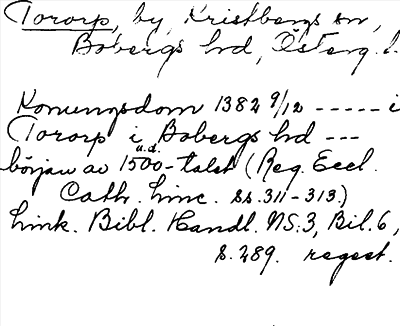 Tororp, by, Kristbergs sn,
Bobergs hd, Österg. l.
Konungsdom 1382 9/12 ----- i
Tororp i Bobergs hd ---
början av 1500-talet (Reg. Eccl.
a.d.
Cath. Linc. ss. 311-313.)
Link. Bibl. Handl. NS. 3, Bil. 6,
s. 289. regest.